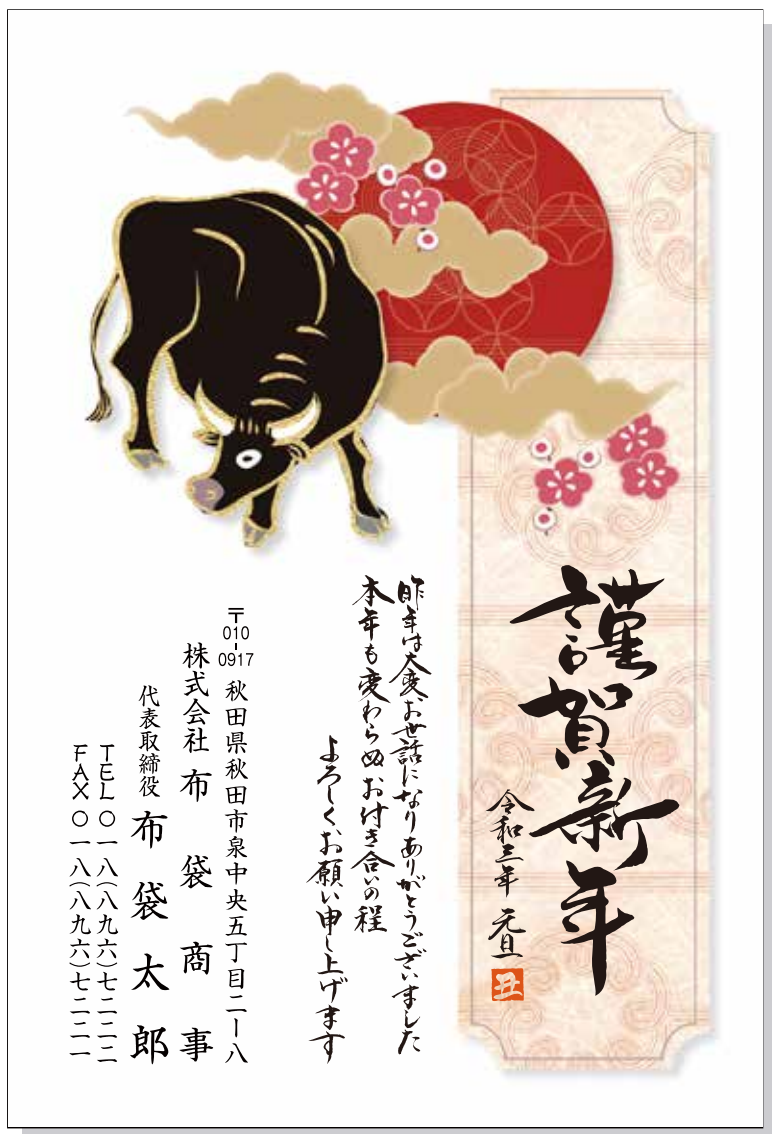 謹賀新年
令和三年 元旦
丑
昨年は大変お世話になりありがとうございました
本年も変わらぬお付き合いの程
よろしくお願い申し上げます
〒010-0917 秋田県秋田市泉中央五丁目二ー八
株式会社 布袋商事
代表取締役 布袋太郎
TEL〇一八(八九六)七二二二
FAX〇一八(八九六)七二二一